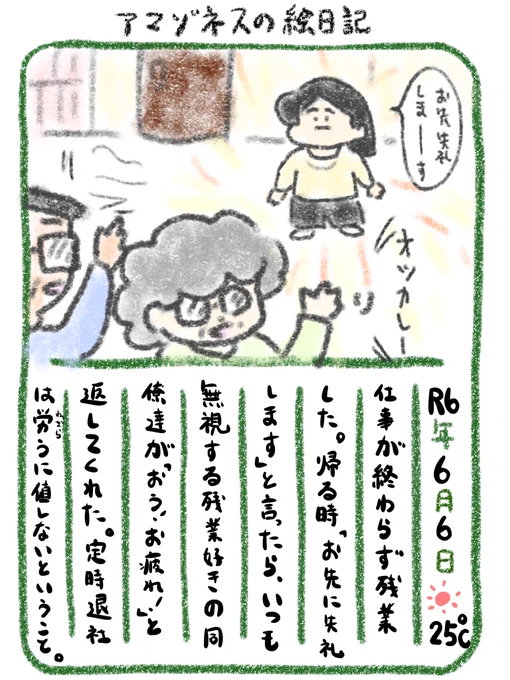 アマゾネスの絵日記
お先、失礼
しまーーす
オッカレー
R6年6月6日 25℃
仕事が終わらず残業
した。帰る時「お先に失礼
します」と言ったら、いつも
無視する残業好きの同
僚達が「おう!お疲れ!」と
返してくれた。定時退社
は労うに値しないということ。
ねぎら